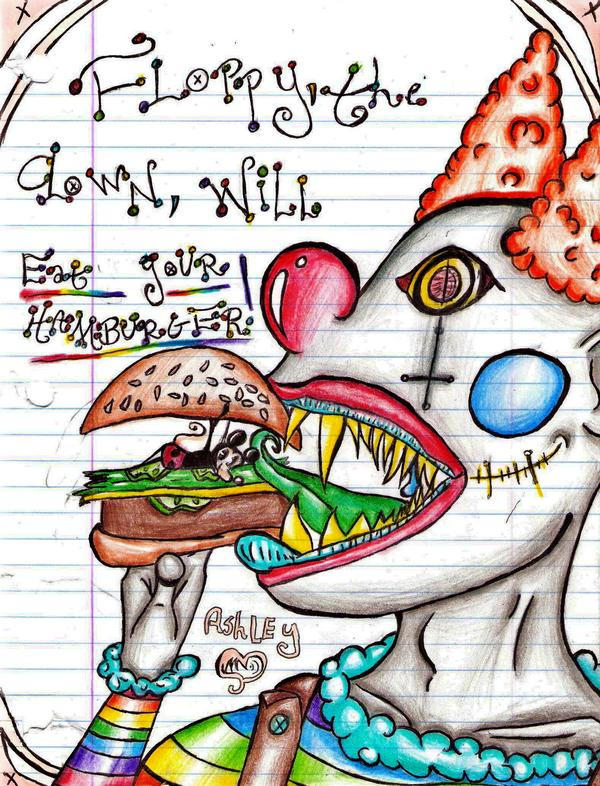 FLoppy, the
CLowN, WiLL
Eat YOUR
HAMBURGER!
AshLEy